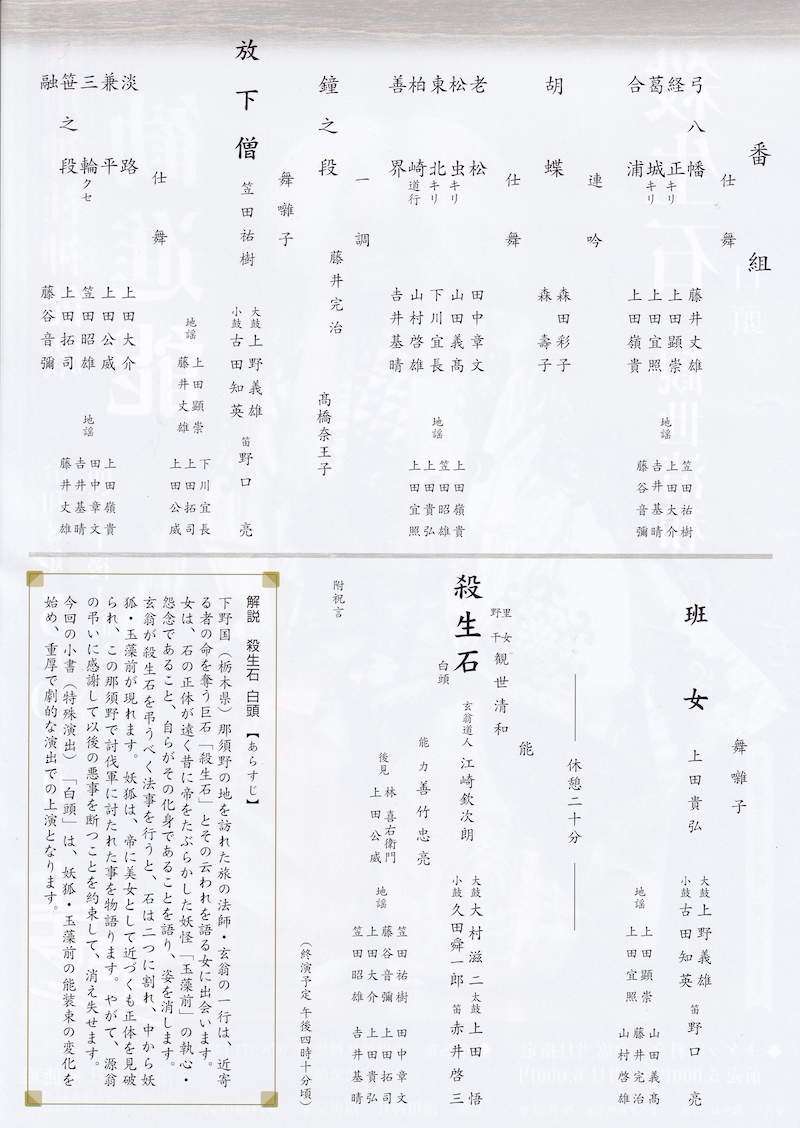 番組
仕舞
弓八幡 藤井丈雄
経正キリ 上田顕崇
葛城キリ 上田宜照
合浦 上田嶺貴
地謡
笠田祐樹
上田大介
吉井基晴
藤谷音彌
連吟
胡蝶
森田彩子
森壽子
仕舞
老松 田中章文
松虫キリ 山田義髙
東北キリ 下川宜長
柏崎道行 山村啓雄
善界 吉井基晴
地謡
上田嶺貴
笠田昭雄
上田貴弘
上田宜照
一調
鐘之段 藤井完治 髙橋奈王子
舞囃子
放下僧 笠田祐樹
大鼓 上野義雄
小鼓 古田知英
笛 野口亮
地謡
上田顕崇
藤井丈雄
下川宜長
上田拓司
上田公威
仕舞
淡路 上田大介
兼平 上田公威
三輪クセ 笠田昭雄
笹之段 上田拓司
融 藤谷音彌
地謡
上田嶺貴
田中章文
吉井基晴
藤井丈雄
舞囃子
班女 上田貴弘
大鼓 上野義雄
小鼓 古田知英
笛 野口亮
地謡
上田顕崇
上田宜照
山田義髙
藤井完治
山村啓雄
休憩二十分
能
殺生石 白頭
里女
野干
観世清和
玄翁道人 江崎欽次朗
能力 善竹忠亮
大鼓 大村滋二
小鼓 久田舜一郎
太鼓 上田悟
笛 赤井啓三
後見
林喜右衛門
上田公威
地謡
笠田祐樹
藤谷音彌
上田大介
笠田昭雄
田中章文
上田拓司
上田貴弘
吉井基晴
附祝言
（終演予定 午後四時十分頃）
解説 殺生石 白頭 【あらすじ】
下野国（栃木県）那須野の地を訪れた旅の法師・玄翁の一行は、近寄
る者の命を奪う巨石「殺生石」とその云われを語る女に出会います。
女は、石の正体が遠く昔に帝をたぶらかした妖怪「玉藻前」の執心・
怨念であること、自らがその化身であることを語り、姿を消します。
玄翁が殺生石を弔うべく法事を行うと、石は二つに割れ、中から妖
狐・玉藻前が現れます。妖狐は、帝に美女として近づくも正体を見破
られ、この那須野で討伐軍に討たれた事を物語ります。やがて、源翁
の弔いに感謝して以後の悪事を断つことを約束して、消え失せます。
今回の小書（特殊演出）「白頭」は、妖狐・玉藻前の能装束の変化を
始め、重厚で劇的な演出での上演となります。